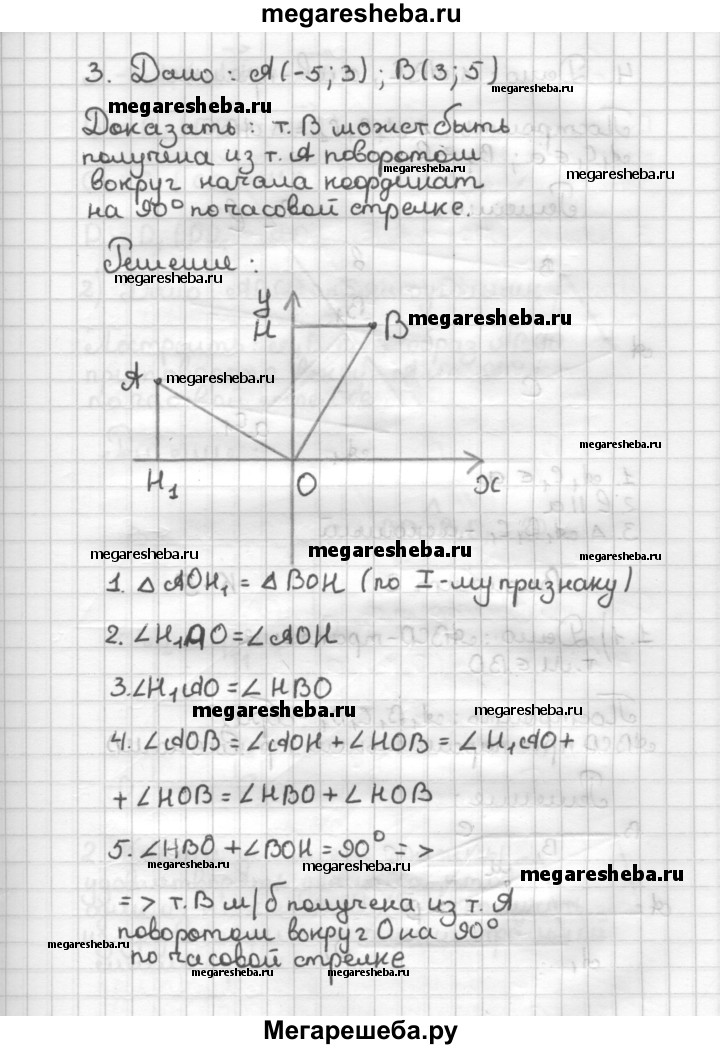 megaresheba.ru
3. Дано: А(-5; 3); В(3; 5)
megaresheba.ru
megaresheba.ru
Доказать: т. В может быть
получена из т. А поворотом
megaresheba.ru
megaresheba.ru
вокруг начала координат
на 90° по часовой стрелке.
Решение:
megaresheba.ru
y
H
B
megaresheba.ru
A
megaresheba.ru
megaresheba.ru
H₁
O
x
megaresheba.ru
megaresheba.ru
megaresheba.ru
1. △ AOH₁ = △ BOH (по I-му признаку)
2. ∠H₁AO = ∠AOH
3. ∠H₁AO = ∠HBO
megaresheba.ru
megaresheba.ru
4. ∠AOB = ∠AOH + ∠HOB = ∠H₁AO +
+ ∠HOB = ∠HBO + ∠HOB
5. ∠HBO + ∠BOH = 90° =>
megaresheba.ru
megaresheba.ru
megaresheba.ru
=> т. В м/б получена из т. А
поворотом вокруг О на 90°
megaresheba.ru
по часовой стрелке
megaresheba.ru
megaresheba.ru
megaresheba.ru
Мегарешеба.ру